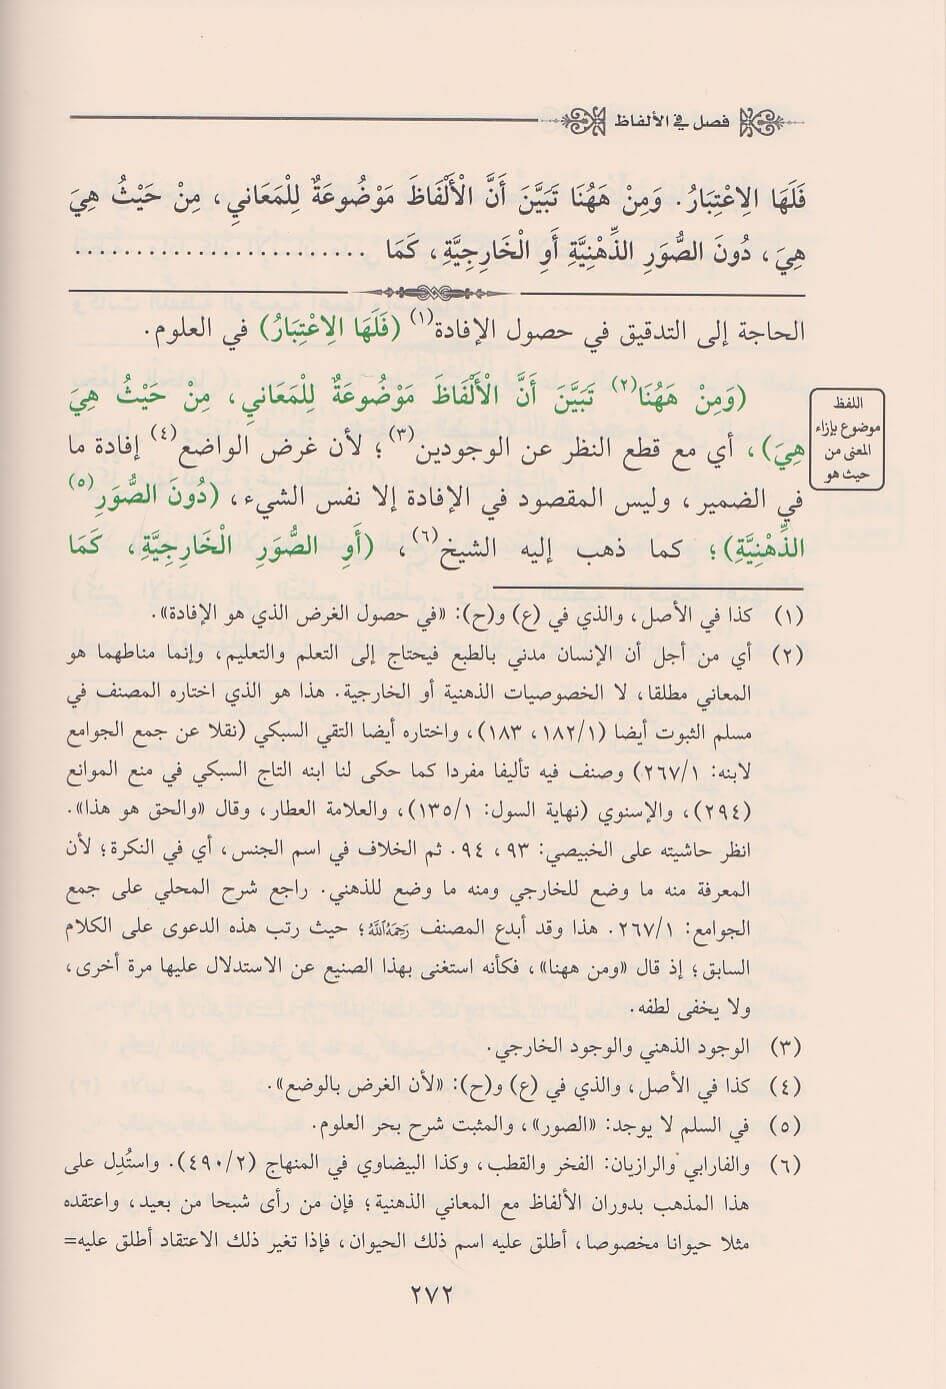 فصل في الألفاظ
فَلَهَا الِاعْتِبَارُ. وَمِنْ هَهُنَا تَبَيَّنَ أَنَّ الْأَلْفَاظَ مَوْضُوعَةٌ لِلْمَعَانِي، مِنْ حَيْثُ هِيَ
هِيَ، دُونَ الصُّوَرِ الذِّهْنِيَّةِ أَوِ الْخَارِجِيَّةِ، كَمَا ........................
الحاجة إلى التدقيق في حصول الإفادة(١) (فَلَهَا الِاعْتِبَارُ) في العلوم.
(وَمِنْ هَهُنَا(٢) تَبَيَّنَ أَنَّ الْأَلْفَاظَ مَوْضُوعَةٌ لِلْمَعَانِي، مِنْ حَيْثُ هِيَ
هِيَ)، أي مع قطع النظر عن الوجودين(٣)؛ لأن غرض الواضع(٤) إفادة ما
في الضمير، وليس المقصود في الإفادة إلا نفس الشيء، (دُونَ الصُّوَرِ(٥)
الذِّهْنِيَّةِ)؛ كما ذهب إليه الشيخ(٦)، (أَوِ الصُّوَرِ الْخَارِجِيَّةِ، كَمَا
اللفظ
موضوع بإزاء
المعنى من
حيث هو
(١) كذا في الأصل، والذي في (ع) و(ح): «في حصول الغرض الذي هو الإفادة».
(٢) أي من أجل أن الإنسان مدني بالطبع فيحتاج إلى التعلم والتعليم، وإنما مناطهما هو
المعاني مطلقا، لا الخصوصيات الذهنية أو الخارجية. هذا هو الذي اختاره المصنف في
مسلم الثبوت أيضا (١٨٢/١، ١٨٣)، واختاره أيضا التقي السبكي (نقلا عن جمع الجوامع
لابنه: ٢٦٧/١) وصنف فيه تأليفا مفردا كما حكى لنا ابنه التاج السبكي في منع الموانع
(٢٩٤)، والإسنوي (نهاية السول: ١٣٥/١)، والعلامة العطار، وقال «والحق هو هذا».
انظر حاشيته على الخبيصي: ٩٣، ٩٤. ثم الخلاف في اسم الجنس، أي في النكرة؛ لأن
المعرفة منه ما وضع للخارجي ومنه ما وضع للذهني. راجع شرح المحلي على جمع
الجوامع: ٢٦٧/١. هذا وقد أبدع المصنف رَحِمَهُ اللَّهُ؛ حيث رتب هذه الدعوى على الكلام
السابق؛ إذ قال «ومن ههنا»، فكأنه استغنى بهذا الصنيع عن الاستدلال عليها مرة أخرى،
ولا يخفى لطفه.
(٣) الوجود الذهني والوجود الخارجي.
(٤) كذا في الأصل، والذي في (ع) و(ح): «لأن الغرض بالوضع».
(٥) في السلم لا يوجد: «الصور»، والمثبت شرح بحر العلوم.
(٦) والفارابي والرازيان: الفخر والقطب، وكذا البيضاوي في المنهاج (٤٩٠/٢). واستُدِل على
هذا المذهب بدوران الألفاظ مع المعاني الذهنية؛ فإن من رأى شبحا من بعيد، واعتقده
مثلا حيوانا مخصوصا، أطلق عليه اسم ذلك الحيوان، فإذا تغير ذلك الاعتقاد أطلق عليه=
٢٧٢